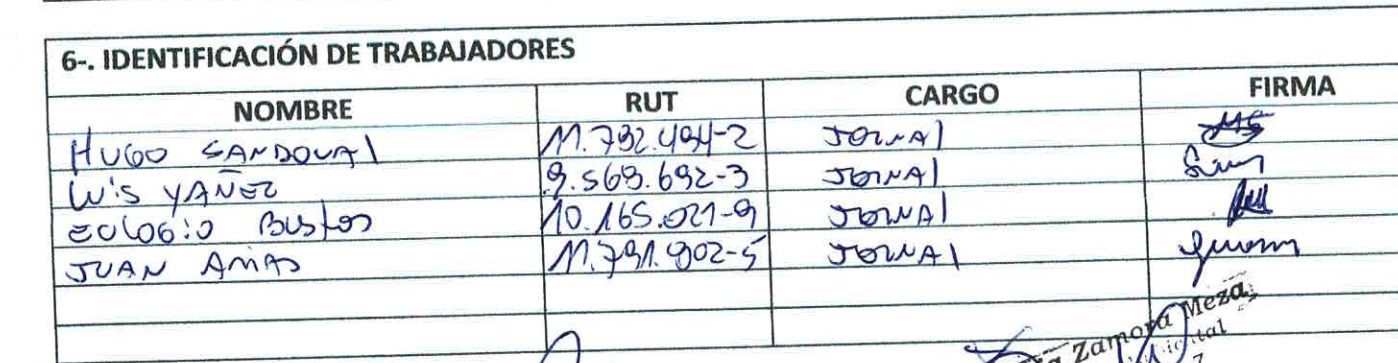 6-. IDENTIFICACIÓN DE TRABAJADORES
NOMBRE RUT CARGO FIRMA
HUGO SANDOVAl 11.792.494-2 JORNAl
LUIS YAÑEZ 9.569.692-3 JORNAl
EULOGIO BUSTOS 10.165.021-9 JORNAl
JUAN 11.791.902-5 JORNAl
Zamora Meza